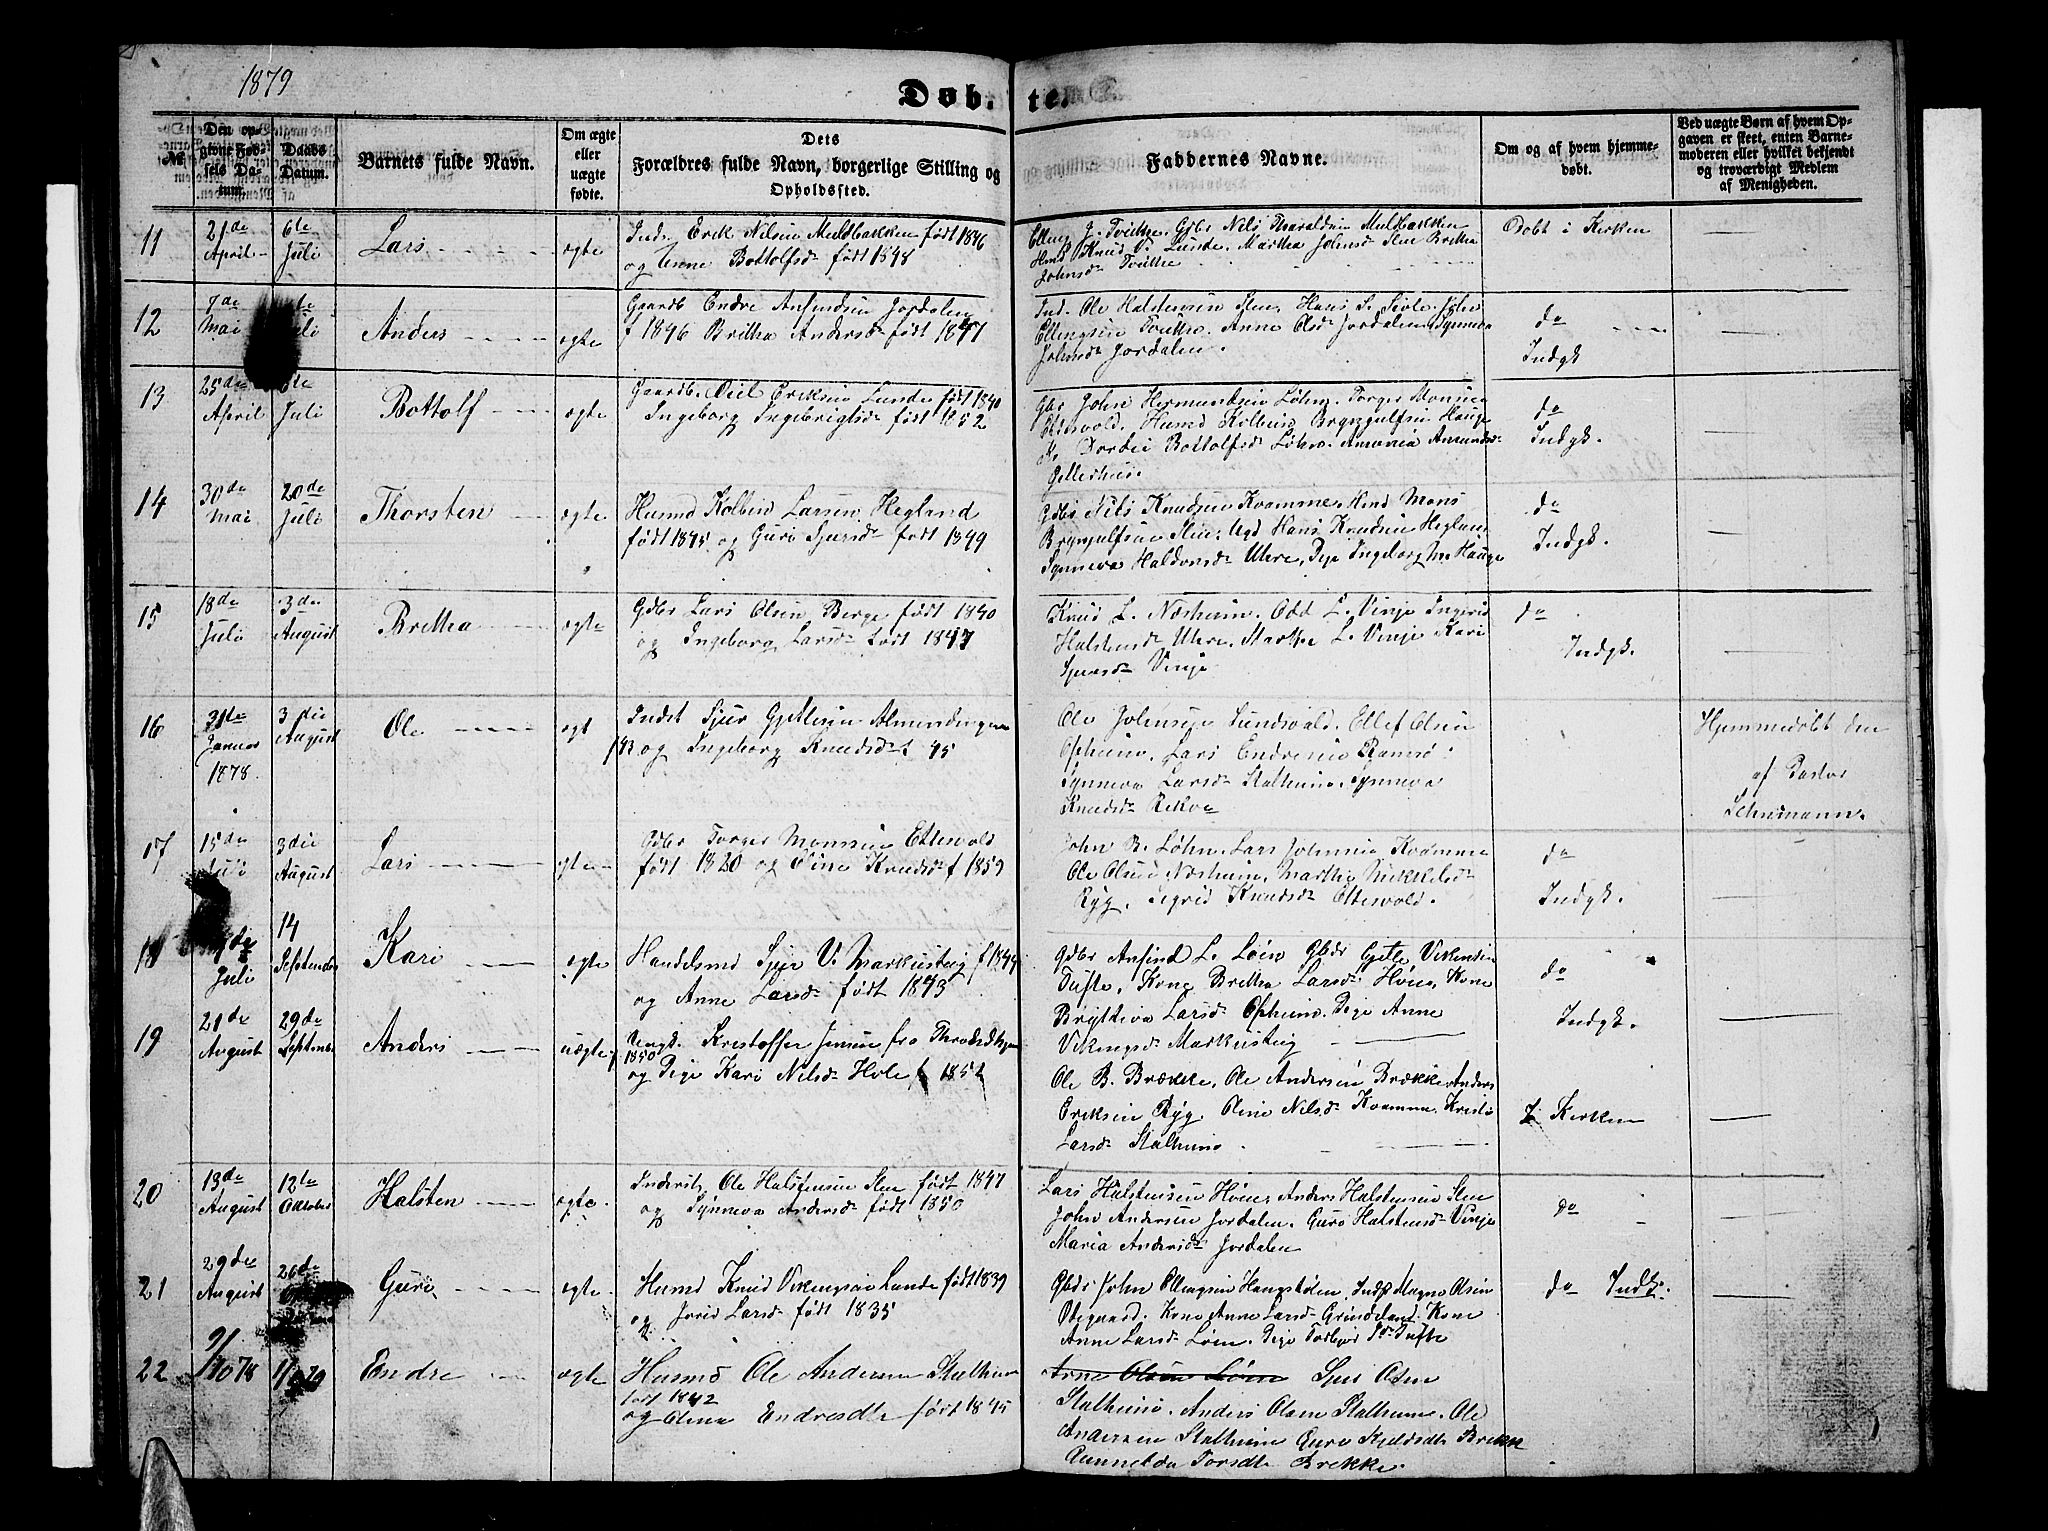 1879
Døb. te.
No.
Den op-
givne Fød-
sels Da-
tum.
Daabs
Datum.
Barnets fulde Navn.
Om ægte
eller
uægte
fødte.
Dets
Forældres fulde Navn, borgerlige Stilling og
Opholdssted.
Faddernes Navne.
Om og af hvem hjemme-
døbt.
Ved uægte Børn af hvem Op-
gaven er skeet, enten Barne-
moderen eller hvilket bekjendt
og troværdigt Medlem
af Menigheden.
11
21de
April
6te
Juli
Lars
ægte
Inds Erik Nilsen Muldbakken født 1846
og Anne Bottolfsd født 1848
Elling J. Tvithe. Gdbr Nils Haraldsen Muldbakken
Hmd Knud V. Lunde. Martha Johnsd Slæn Britha
Johnsd Tvithe
Døbt i Kirken
12
7de
Mai
6te
Juli
Anders
ægte
Gaardb Endre Anfindsen Jordalen
f 1846 Britha Andersd født 1847
Ind. Ole Halstensen Slæn, Hans S. Sivle. John
Ellingsen Tvithe. Anne Olsd Jordalen Synneva
Johnsd Jordalen.
do
Indgk
13
25de
April
6te
Juli
Bottolf
ægte
Gaardb. Eriksen Lunde født 1840
Ingeborg Ingebrigtsd født 1852
Gbr John Hermundsen Løhn. Torger Monsen
Ettesvold. Husmd Kolbein Brynjulfsen Hauge
Dordei Bottolfsd Løhn. Amunda Amundsd
Gjellerhus.
do
Indgk.
14
30de
Mai
20de
Juli
Thorsten
ægte
Husmd Kolbein Larsen Hegland
født 1845 og Guri Sjursd født 1849
Gdbr Nils Knudsen Kvamme, Hmd Mons
Brynjulfsen Slæn, Ugd Hans Knudsen Hegland
Synneva Haldorsd Uhre, Pige Ingeborg M Hauge
do
Indgk.
15
18de
Juli
3die
August
Britha
ægte
Gdbr Lars Olsen Berge født 1840
og Ingeborg Larsd født 1847
Knud L. Næsheim. Odd L. Vinje Ingerid
Halstensd Uhre. Martha L. Vinje Kari
Sjursd Vinje
do
Indgk.
16
31te
Januar
1878.
3die
August
Ole
ægt
Indst Sjur Gjetlesen Almendingen
f 43 og Ingeborg Knudsd f 45
Ole Johnsen Sundsvald. Ellef Olsen
Opheim. Lars Endresen Ramsø
Synneva Larsd Stalheim. Synneva
Knudsd Rekva
Hjemmedøbt den
af Pastor
Schumann.
17
15de
Juli
3die
August
Lars
ægte
Gdbr Torger Monsen Ettesvold
født 1820 og Eline Knudsd f 1859
John B. Løhn. Lars Johnsen Kvamme
Ole Olsen Næsheim. Martha Mikkelsd
Ryg. Sigrid Knudsd Ettesvold.
do
Indgk.
18
Juli
14
September
Kari
ægte
Handelsmd Sjur V. Markusteig f 1844
og Anne Larsd født 1843
Gdbr Anfind L. Løin Gbdr Gjetle Vikensen
Tufte, Kone Britha Larsd Høin, Kone
Bryttva Larsd Opheim. Pige Anne
Vikingsd Markusteig
do
Indgk.
19
21de
August
29de
September
Anders
uægte
Ungk. Kristoffer Jensen fra Throndhjem
f 1850
og Pige Kari Nilsd Hole f 1852
Ole B. Brække, Ole Andersen Brække Anders
Eriksen Ryg. Oline Nilsd Kvamme. Kristi
Larsd Stalheim
I Kirken
20
13de
August
12te
Oktober
Halsten
ægte.
Inderst Ole Halstensen Slæn født 1847
og Synneva Andersd født 1850
Lars Halstensen Høin, Anders Halstensen Slæn
John Andersen Jordalen. Guro Halstensd Vinje
Maria Andersd Jordalen
do
21
29de
August
26de
Guri
ægte
Husmd Knud Vikingsen Lunde født 1839
og Jorid Larsd født 1835
Gbdr John Ellingsen Haugstølen, Indst Magne Olsen
Ødegaard. Kone Anne Larsd Grindeland. Kone
Anne Larsd Løin. Pige Torbjør Tufte
do Indgk.
22
9/10 78
Endre
ægte
Husmd Ole Andersen Stalheim
født 1842
og Oline Endresdtr født 1845
Arne Olsen Løin Sjur Olsen
Stalheim. Anders Olsen Stalheim. Ole
Andersen Stalheim Guro Kjeldsdtr Brekke
Gunnelda Torsdtr Brekke.